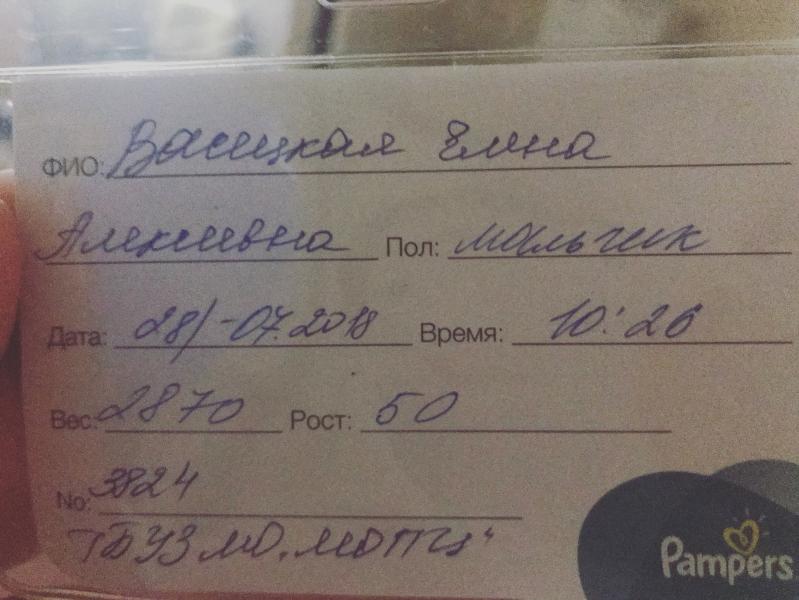 ФИО: Васецкая Елена
Алексеевна Пол: мальчик
Дата: 28/-07.2018 Время: 10:26
Вес: 2870 Рост: 50
No: 3824
ГБУЗ МО. МОПЦ"
Pampers